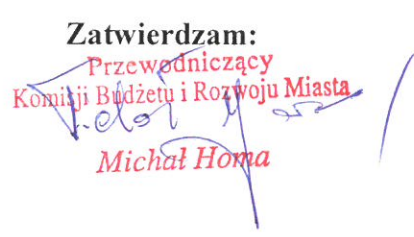 Zatwierdzam:
Przewodniczący
Komisji Budżetu i Rozwoju Miasta
Michał Homa